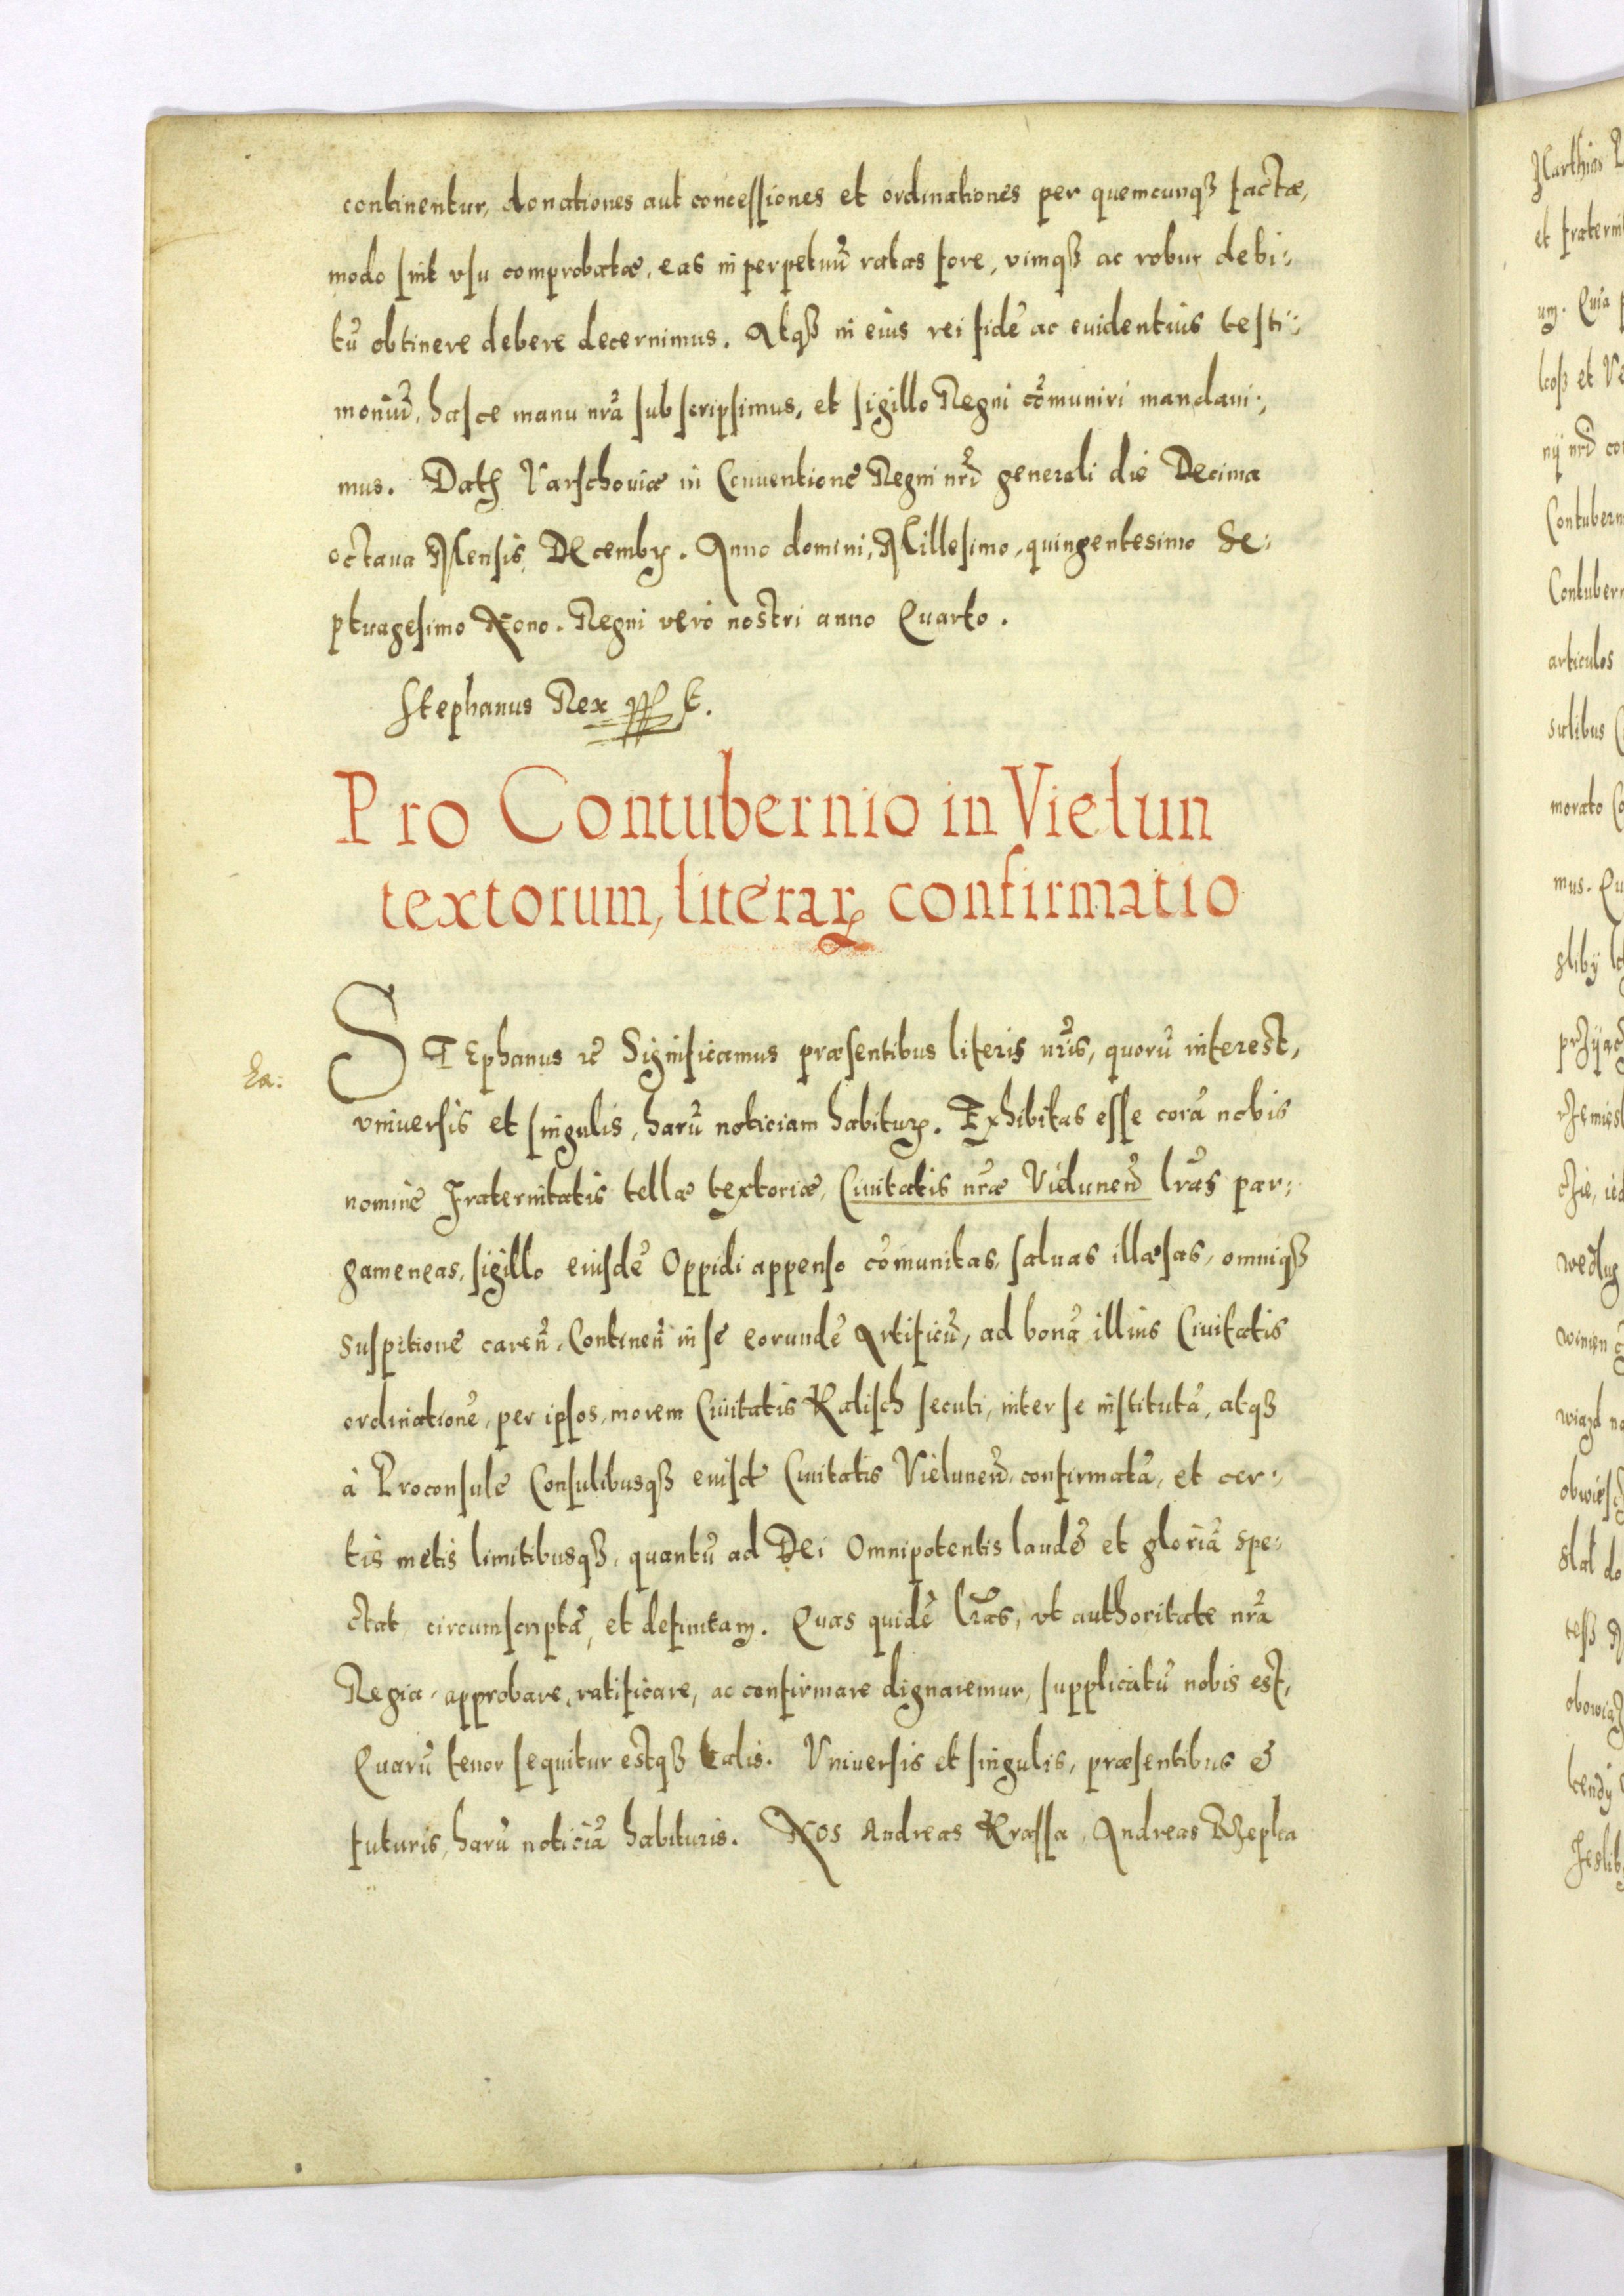 continentur, donationes aut concessiones et ordinationes per quemcunqȝ factæ,
modo sint vsu comprobatæ, eas in perpetuũ ratas fore, vimqȝ ac robur debi:
tũ obtinere debere decernimus. Atqȝ in eius rei fidẽ ac euidentius testi:
moniũ, hasce manu nrã subscripsimus, et sigillo Regni cõmuniri mandaui:
mus. Datȝ Varschouiæ in Conuentione Regni nrĩ generali die Decima
octaua Mensis Decembrꝭ. Anno domini, Millesimo, quingentesimo Se:
ptuagesimo Nono. Regni vero nostri anno Quarto.
Stephanus Rex
Pro Contubernio in Vielun
textorum, literaꝝ confirmatio
La:
STEphanus rẽ Significamus præsentibus literis nrĩs, quorũ interest,
vniuersis et singulis, harũ noticiam habiturꝭ. Exhibitas esse corã nobis
nomine Fraternitatis tellæ textoriæ, Ciuitatis nræ̃ Vielunen̄ lrãs par:
gameneas, sigillo eiusdẽ Oppidi appenso cõmunitas, saluas illæsas, omniqȝ
suspitione caren̄, Continen̄ in se eorundẽ Artificũ, ad bonã illius Ciuitatis
ordinationẽ, per ipsos, morem Ciuitatis Kalisch secuti, inter se institutã, atqȝ
à Proconsule Consulibusqȝ eiusdẽ Ciuitatis Vielunen̄, confirmatã, et cer:
tis metis limitibusqȝ, quantũ ad Dei Omnipotentis laudẽ et gloriã spe:
ctat circumscriptã, et definitam. Quas quidẽ lrãs, vt authoritate nrã
Regia, approbare, ratificare, ac confirmare dignaremur, supplicatũ nobis est,
Quarũ tenor sequitur estqȝ talis. Vniuersis et singulis, præsentibus &
futuris, harũ noticiã habituris. Nos Andreas Krassa, Andreas Rzepka
Marthias
et fraterni
um. Quia
et Ve
nrĩ
Contubern
Contubern
articulos
sulibus
morato
mus.
wedlug
do